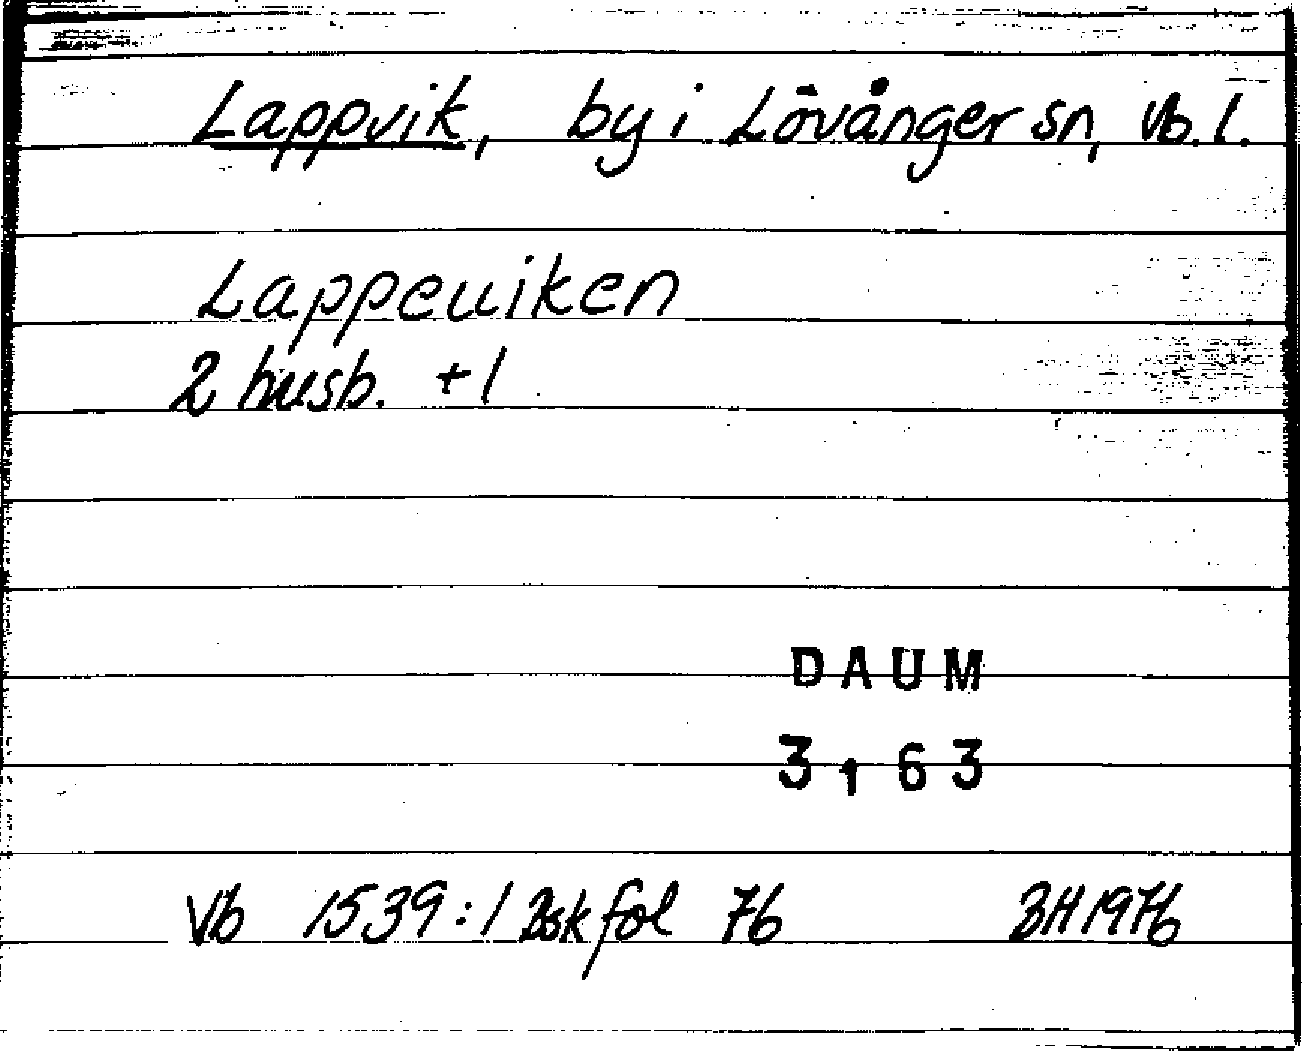 Lappvik, by i Lövånger sn, Vb. l.
Lappeuiken
2 husb. + 1
DAUM
3163
Vb 1539:1 Bsk fol 76 BH 1976